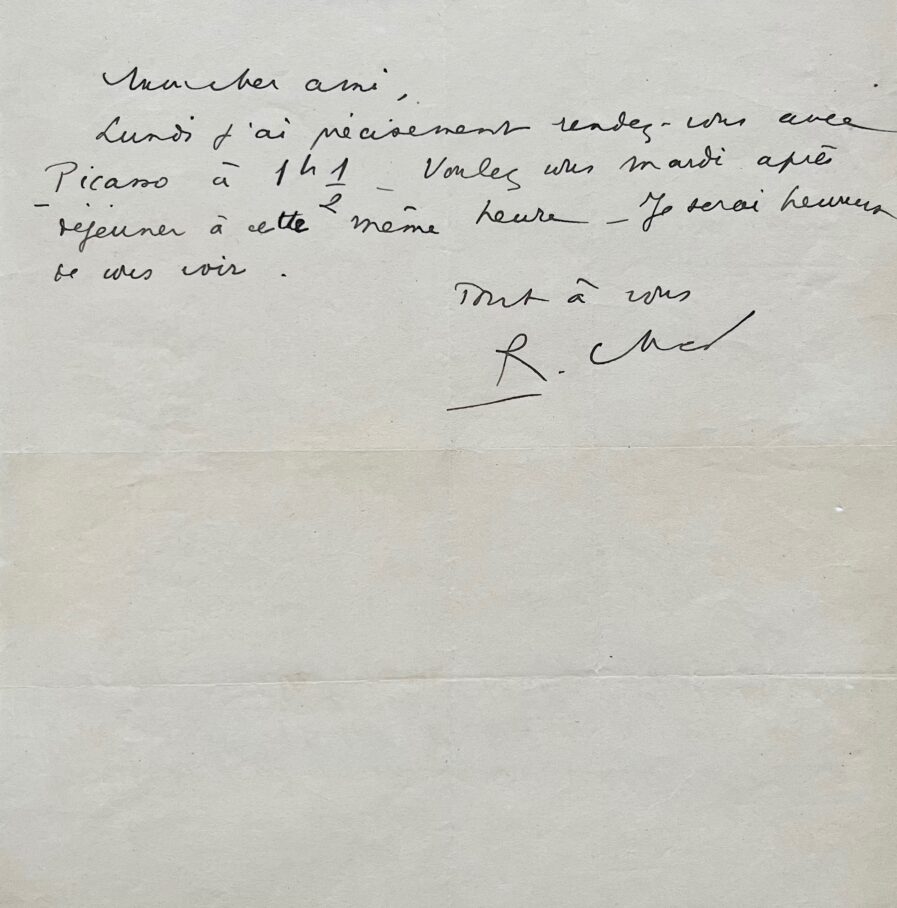 Mon cher ami,
Lundi j'ai précisement rendez-vous avec
Picasso à 1h 1/2 _ Voulez vous mardi après
déjeuner à cette même heure _ Je serai heureux
de vous voir .
Tout à vous
R. Char